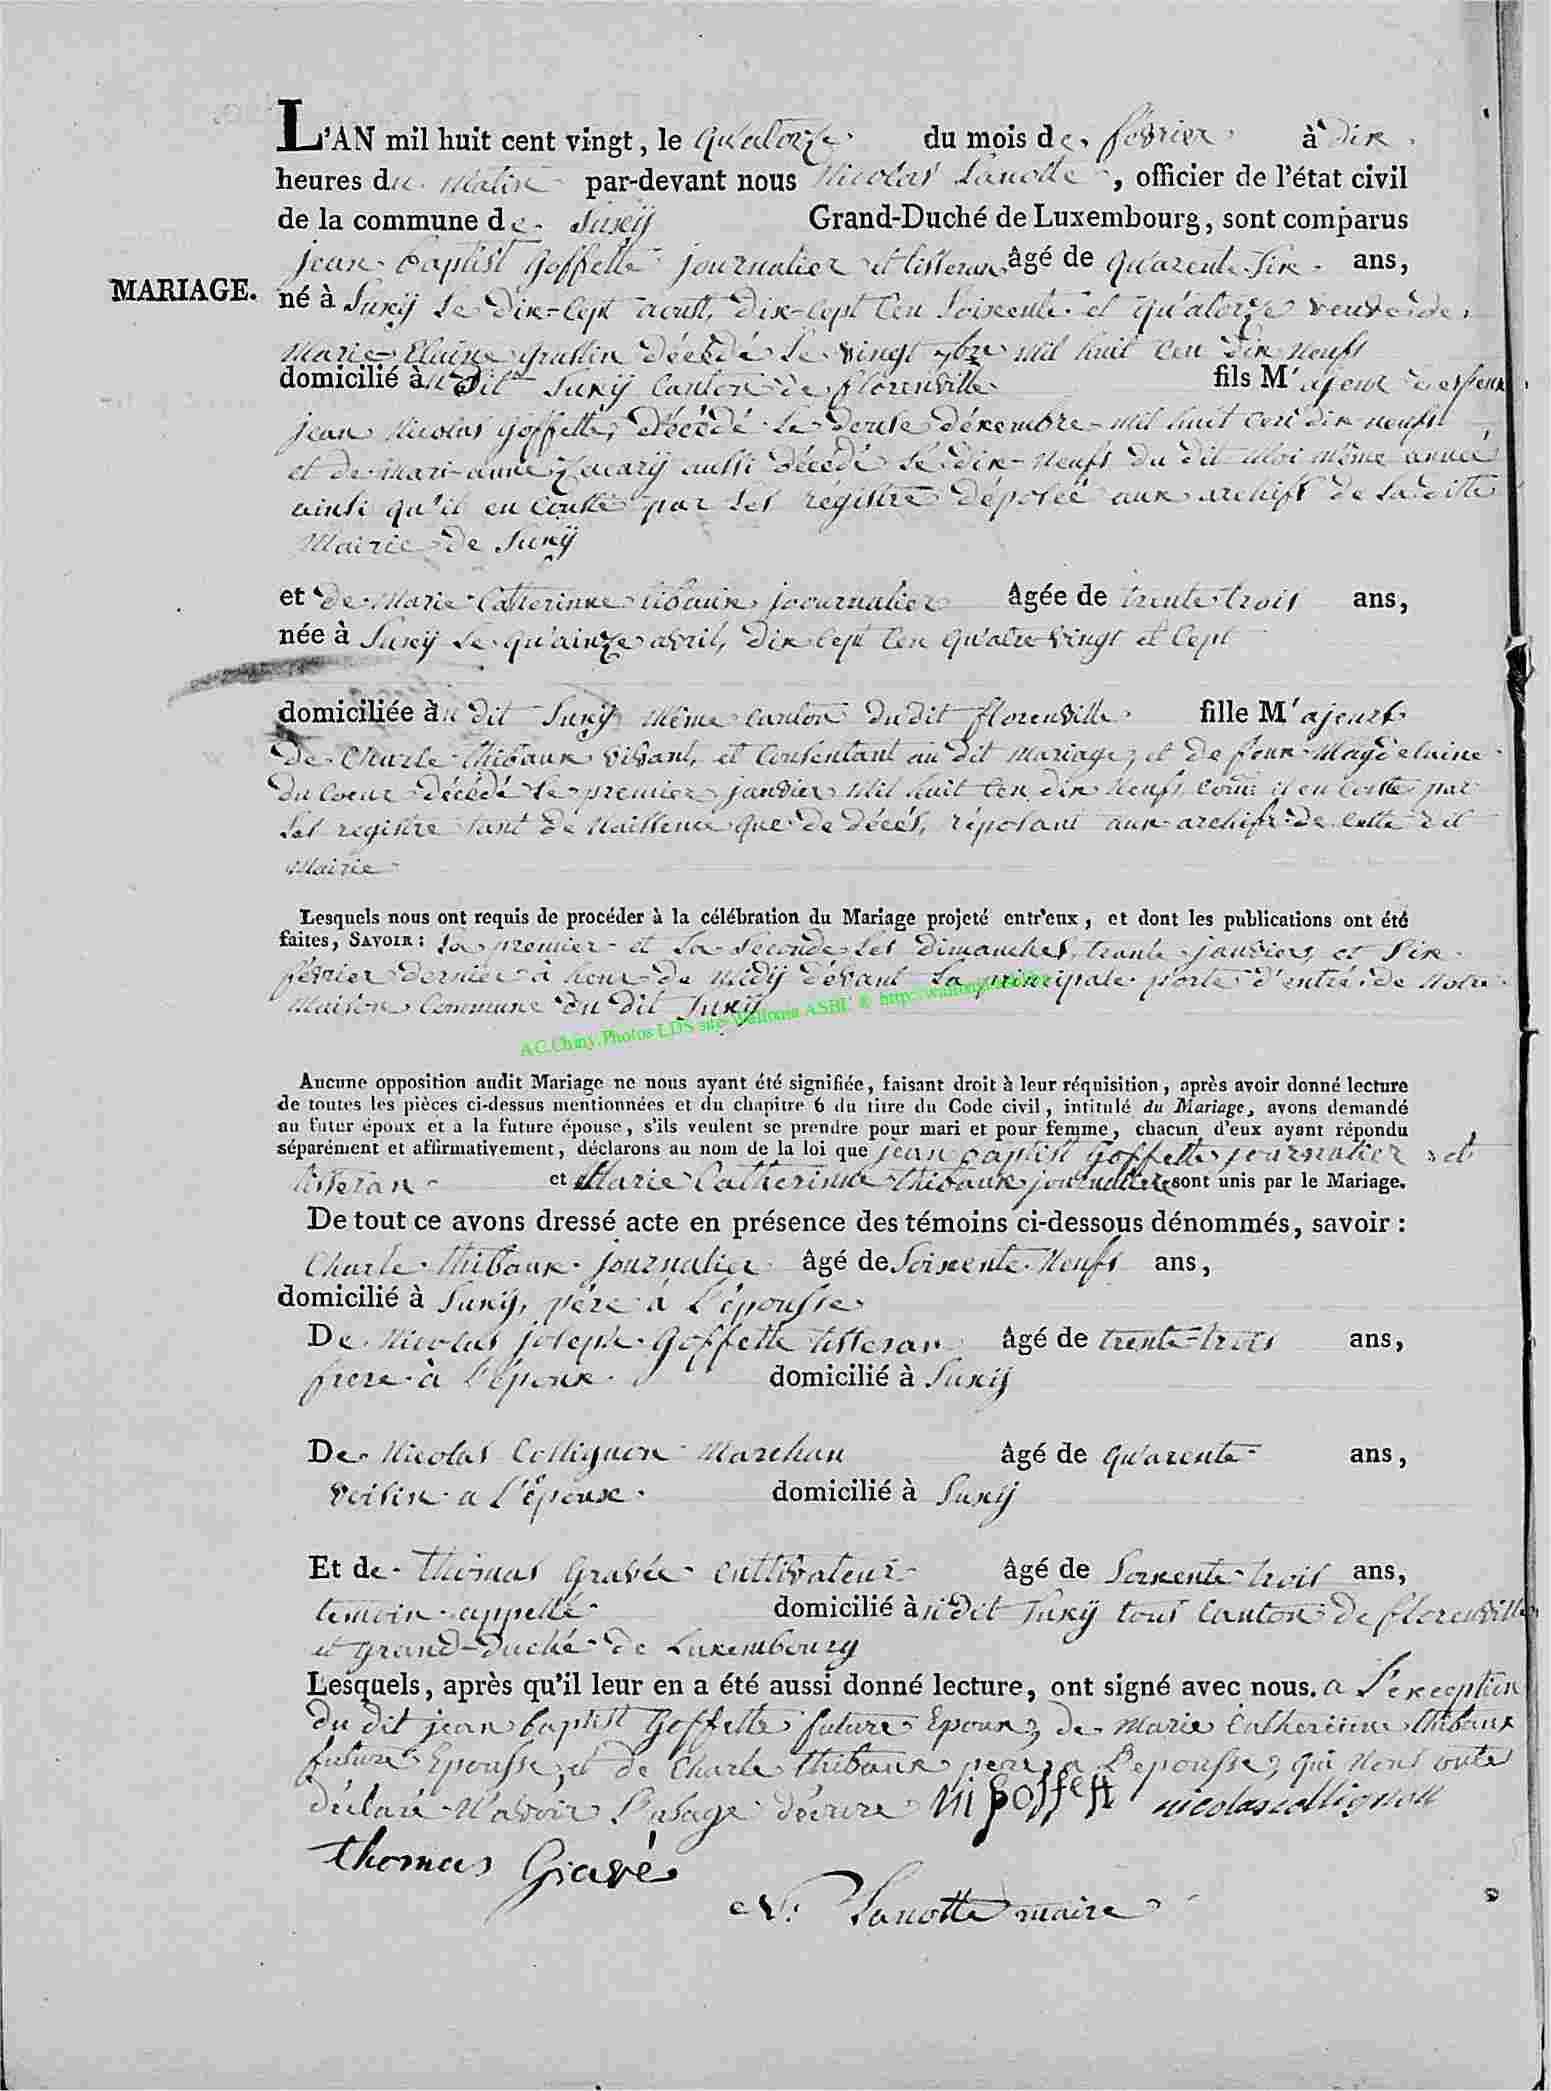 L'AN mil huit cent vingt, le Qu'atorze du mois de février à dix
heures du matin par-devant nous Nicolas Lanotte, officier de l'état civil
de la commune de Suxÿ Grand-Duché de Luxembourg, sont comparus
jean Baptist Goffette journalier et tisseran âgé de qu'arente Six ans,
MARIAGE.
né à Suxÿ Le dix-Sept aoust, dix-Sept Cen Soixente et qu'atorze veuve de
Marie-Elaine grassin décédé Le vingt 7bre mil huit Cen dix neufs
domicilié àu dit Suxÿ Canton de florenville fils M'ajeur de feux
jean Nicolas Goffette, décédé Le douse décembre mil huit Cen dix neufs
et de mari-anne Zacarÿ aussi décédé Le dix-Neufs du dit Moi même année
ainsi qu'il en Conste par Les régistre déposée aux archifs de Ladite
Mairie de Suxÿ
et de Marie Catterinne tibaux joournalier Agée de trente trois ans,
née à Suxÿ Le qu'ainze avril, dix Sept Cen qu'atre vingt et Sept
domiciliée àu dit Suxÿ même canton dudit florenville fille M'ajeure
de Charle thibaux vivant, et Consentant au dit mariage, et de feux Magdelaine
du Coeur décédé Le premier janvier Mil huit Cen dix Neufs, Com̄ il en Conste par
Les registre tant de Naissence que de décés, réposant aux archifs de Cette dit
Mairie
Lesquels nous ont requis de procéder à la célébration du Mariage projeté entr'eux, et dont les publications ont été
faites, SAVOIR: La premier et La Seconde Les dimanches, trante janvier, et Six
février dernier à heur de Midÿ dévant La principale porte d'entré de Notre
Maison Commune du dit Suxÿ
AC.Chiny.Photos LDS site Wallonia ASBL © http://wallonia
Aucune opposition audit Mariage ne nous ayant été signifiée, faisant droit à leur réquisition, après avoir donné lecture
de toutes les pièces ci-dessus mentionnées et du chapitre 6 du titre du Code civil, intitulé du Mariage, avons demandé
au futur époux et à la future épouse, s'ils veulent se prendre pour mari et pour femme, chacun d'eux ayant répondu
séparément et affirmativement, déclarons au nom de la loi que jean baptist Goffette journalier et
tisseran et Marie Catherinne thibaux journaliere sont unis par le Mariage.
De tout ce avons dressé acte en présence des témoins ci-dessous dénommés, savoir:
Charle thibaux journalier âgé de Soixente Neufs ans,
domicilié à Suxÿ, pére à L'épousse
De Nicolas joseph Goffette tisseran âgé de trente-trois ans,
frere à L'époux domicilié à Suxÿ
De Nicolas Collignon Marchan âgé de qu'arente ans,
Voisin a L'époux domicilié à Suxÿ
Et de thomas Gravée Cultivateur âgé de Soixente trois ans,
temoin appellé domicilié àu dit Suxÿ tous Canton de florenville
et Grand-Duché de Luxembourg
Lesquels, après qu'il leur en a été aussi donné lecture, ont signé avec nous. a L'exception
du dit jean baptist Goffette future Epoux, de Marie Catherinne thibaux
future Epousse, et de Charle thibaux pere a L'epousse, qui Nous onte
déclaré N'avoir L'usage décrire Ni goffett nicolas collignon
thomas Gravé
N. Lanotte maire